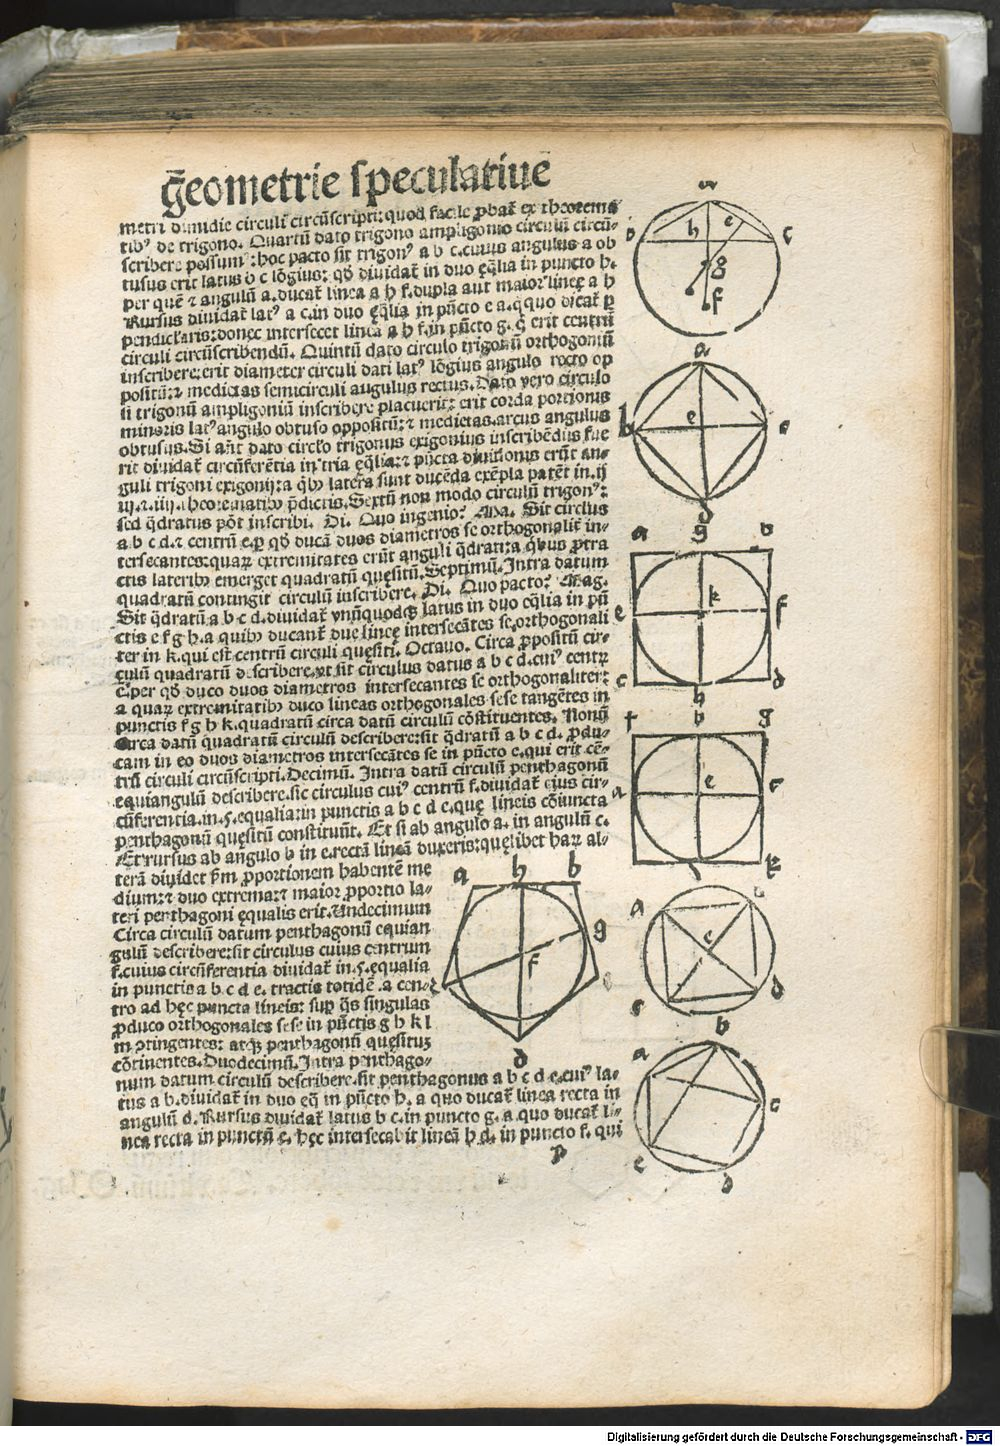 Geometrie speculatiue
metri dimidie circuli circūscripti: quod facile ꝓbat̄ ex theorema
tibꝰ de trigono. Quartū dato trigono ampligonio circulū circū-
scribere possumꝰ: hoc pacto sit trigonꝰ a b c. cuius angulus a ob
tusus erit latus b c lōgius: qd̄ diuidat̄ in duo eq̄lia in puncto h.
per quē & angulū a. ducat̄ linea a h f. dupla aut maior lineę a h
Rursus diuidat̄ latꝰ a c. in duo eq̄lia in pūcto e a. q̄ quo dicat̄ ꝑ
pendiclaris: donec intersecet linea a h f. in pūcto g. q̄ erit centrū
circuli circūscribendū. Quintū dato circulo trigonū orthogoniū
inscribere: erit diameter circuli dati latꝰ lōgius angulo recto op
positū: & medietas semicirculi angulus rectus. Dato vero circulo
si trigonū ampligoniū inscribere placuerit: erit corda portionis
minoris latꝰ angulo obtuso oppositū: & medietas. arcus angulus
obtusus. Si aūt dato circlo trigonus exigonius inscribēdus fue
rit diuidat̄ circūferētia in tria ęq̄lia: & pūcta diuisionis erūt an-
guli trigoni exigonij: a qbꝰ latera sunt ducēda exēpla patēt in. ij
iij. & .iiij. theorematibꝰ p̄dictis. Sextū non modo circulū trigonꝰ:
sed q̄dratus pōt inscribi. Di. Quo ingenio? Ma. Sit circlus
a b c d. & centrū e. ꝑ qd̄ ducā duos diametros se orthogonalit̄ in-
tersecantes: quaꝝ extremitates erūt anguli q̄drati: a qbus ꝓtra
ctis lateribꝰ emerget quadratū quęsitū. Septimū. Intra datum
quadratū contingit circulū inscribere. Di. Quo pacto? Mag.
Sit q̄dratū a b c d. diuidat̄ vnūquodqꝫ latus in duo eq̄lia in pū
ctis e f g h. a quibꝰ ducant̄ due lineę intersecātes se. orthogonali
ter in k. qui est centrū circuli quęsiti. Octauo. Circa ꝓpositū cir-
culū quadratū describere. vt sit circulus datus a b c d. cuiꝰ centꝝ
e. per qd̄ duco duos diametros intersecantes se orthogonaliter:
a quaꝝ extremitatibꝰ duco lineas orthogonales sese tangētes in
punctis f g h k. quadratū circa datū circulū cōstituentes. Nonū
Circa datū quadratū circulū describere: sit q̄dratū a b c d. ꝓdu-
cam in eo duos diametros intersecātes se in pūcto e. qui erit cē-
trū circuli circūscripti. Decimū. Intra datū circulū penthagonū
equiangulū describere. sic circulus cuiꝰ centrū f. diuidat̄ ejus cir-
cūferentia. in .5. equalia: in punctis a b c d e. quę lineis cōiuncta
penthagonū quęsitū constituūt. Et si ab angulo a. in angulū c.
Et rursus ab angulo b in e. rectā lineā duxeris: quęlibet haꝝ al-
terā diuidet ẜm ꝓportionem habentē me
dium: & duo extrema: & maior ꝓportio la-
teri penthagoni ęqualis erit. Undecimum
Circa circulū datum penthagonū equian
gulū describere: sit circulus cuius centrum
f. cuius circūferentia diuidat̄ in .5. equalia
in punctis a b c d e. tractis totidē .a cen-
tro ad hęc puncta lineis: suꝑ q̄s singulas
ꝓduco orthogonales sese in pūctis g h k l
m ↄtingentes: atqꝫ penthagonū quęsitū
cōtinentes. Duodecimū. Intra penthago-
num datum circulū describere. sit penthagonus a b c d e. cuiꝰ la-
tus a b. diuidat̄ in duo eq̄ in pūcto h. a quo ducat̄ linea recta in
angulū d. Rursus diuidat̄ latus b c. in puncto g. a quo ducat̄ li-
nea recta in punctū e. hęc intersecabit lineā h d. in puncto f. qui
p
a
b h e c
g
f
a
b e c
d
a g b
k
e f
c h d
f b g
a e c
d k
a
e
d
c b
a h b
g
f
e c
d
a b
c
e d
Digitalisierung gefördert durch die Deutsche Forschungsgemeinschaft - DFG